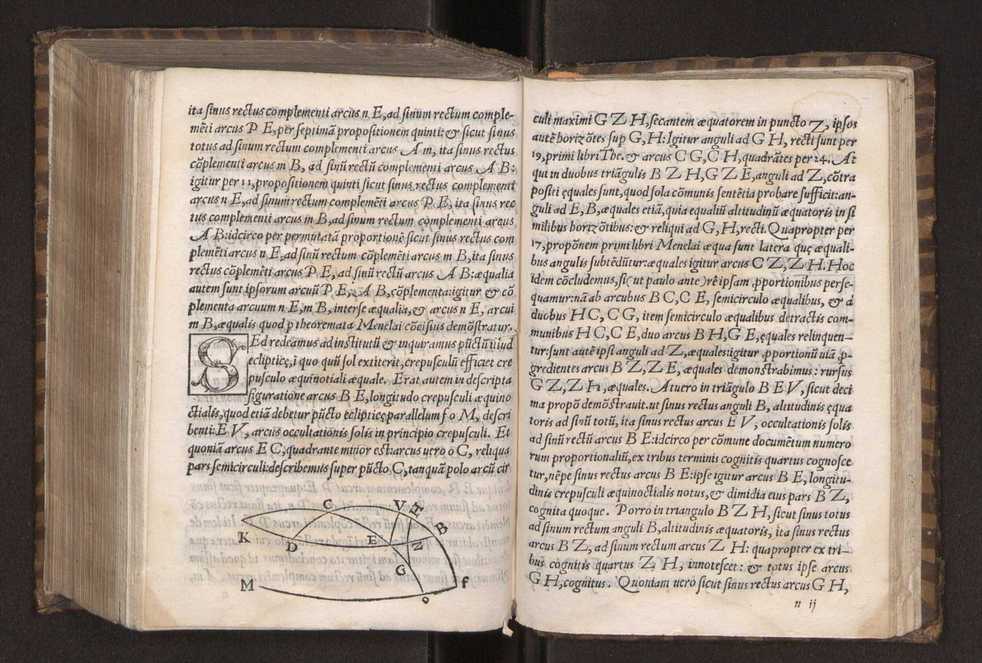 ita sinus rectus complementi arcus n E, ad sinum rectum comple-
mēti arcus P E, per septimā propositionem quinti: & sicut sinus
totus ad sinum rectum complementi arcus A m, ita sinus rectus
cōplementi arcus m B, ad sinū rectū complementi arcus A B:
igitur per 11, propositionem quinti sicut sinus rectus complementi
arcus n E, ad sinum rectum complemēti arcus P E, ita sinus rec
tus complementi arcus m B, ad sinum rectum complementi arcus
A B: idcirco per permutatā proportionē sicut sinus rectus com
plemēti arcus n E, ad sinū rectum complemēti arcus m B, ita sinus
rectus cōplemēti arcus P E, ad sinū rectū arcus A B: æqualia
autem sunt ipsorum arcuū P E, A B, cōplementa: igitur & cō
plementa arcuum n E, m B, inter se æqualia, & arcus n E, arcui
m B, æqualis quod p theoremata Menelai cōcisius demōstratur.
SEd redeamus ad institutū & inquiramus pūctū illud
eclipticę, i quo quū sol extiterit, crepusculū efficiet cre
pusculo æquinoctiali æquale. Erat autem in descripta
figuratione arcus B E, longitudo crepusculi æquino
ctialis, quod etiā debetur pūcto eclipticę parallelum f o M, descri
benti: E V, arcus occultationis solis in principio crepusculi. Et
quoniā arcus E C, quadrante minor est: arcus vero o C, reliqua
pars semicirculi: describemus super pūcto C, tanquā polo arcū cir
C V H
K D E Z B
G
M o f
culi maximi G Z H, secantem æquatorem in puncto Z, ipsos
autē horizōtes sup G, H: Igitur anguli ad G H, recti sunt per
19, primi libri Thc. & arcus C G, C H, quadrātes per 24. At
qui in duobus triāgulis B Z H, G Z E, anguli ad Z, cōtra
positi ęquales sunt, quod sola cōmunis sentētia probare sufficit: an-
guli ad E, B, æquales etiā, quia equaliū altitudinū æquatoris in si
milibus horizōtibus: & reliqui ad G, H, recti. Quapropter per
17, propōnem primi libri Menelai æqua sunt latera quę æquali-
bus angulis subtēdūtur: æquales igitur arcus C Z, Z H. Hoc
idem cōcludemus, si, ut paulo ante, rē ipsam pportionibus perse-
quamur: nā ab arcubus B C, C E, semicirculo æqualibus, & à
duobus H C, C G, item semicirculo æqualibus detractis com-
munibus H C, C E, duo arcus B H, G E, ęquales relinquen-
tur: sunt autē ipsi anguli ad Z, æquales: igitur pportionū uiā p-
gredientes arcus B Z, Z E, æquales demonstrabimus: rursus
G Z, Z H, æquales. At uero in triāgulo B E V, sicut deci
ma propō demōstrauit. ut sinus rectus anguli B, altitudinis ęqua
toris ad sinū totū, ita sinus rectus arcus E V, occultationis solis
ad sinū rectū arcus B E: idcirco per cōmune documētum numero
rum proportionaliū, ex tribus terminis cognitis quartus cognosce
tur, nēpe sinus rectus arcus B E: ipse igitur arcus B E, longitu-
dinis crepusculi æquinoctialis notus, & dimidia eius pars B Z,
cognita quoque. Porro in triangulo B Z H, sicut sinus totus
ad sinum rectum anguli B, altitudinis æquatoris, ita sinus rectus
arcus B Z, ad sinum rectum arcus Z H: quapropter ex tri-
bus cognitis quartus Z H, innotescet: & totus ipse arcus
G H, cognitus. Quoniam uero sicut sinus rectus arcus G H,
n ij